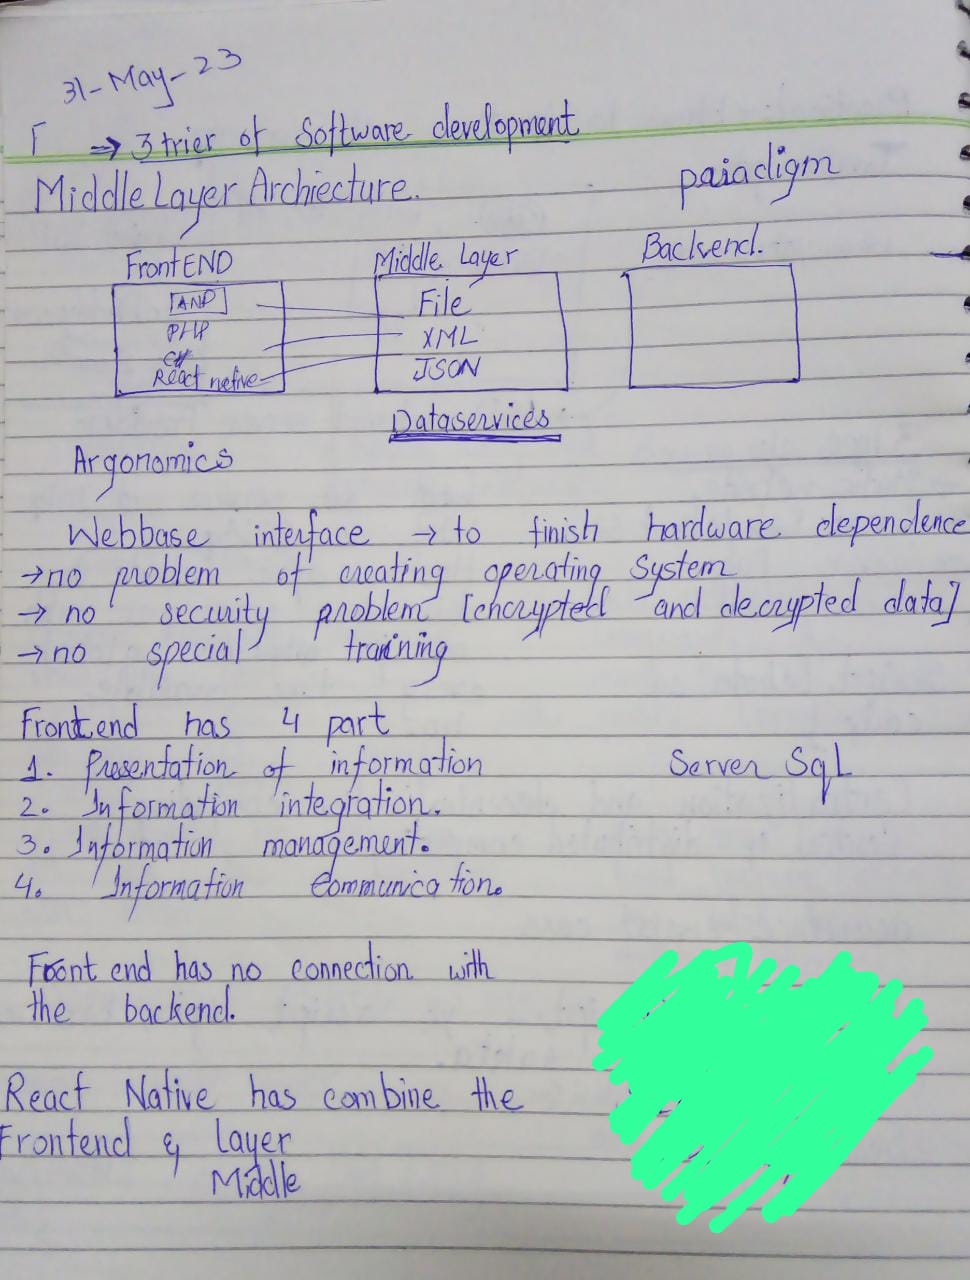 31-May-23
⇒ 3 trier of Software development
Middle Layer Archiecture.
paradigm
FrontEND
Middle Layer
Backend.
File
PHP
XML
C#
React native
JSON
Dataservices
Argonomics
Webbase interface → to finish hardware dependence
→ no problem of creating operating System
→ no security problem [encrypted and decrypted data]
→ no special training
Frontend has 4 part
1. Presentation of information
Server SqL
2. Information integration.
3. Information management.
4. Information Communication.
Front end has no connection with
the backend.
React Native has combine the
Frontend & layer
Middle